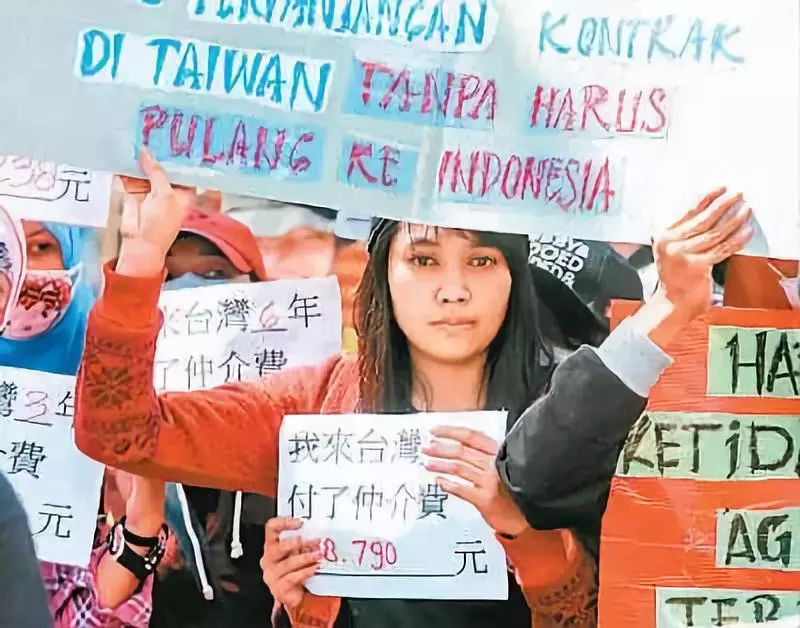 KONTRAK
DI TAIWAN TANPA HARUS
PULANG KE INDONESIA
元
來台灣6年
了仲介費
灣3年
費
元
我來台灣
付了仲介費
8.790 元
HA
KETIDA
AG
TER